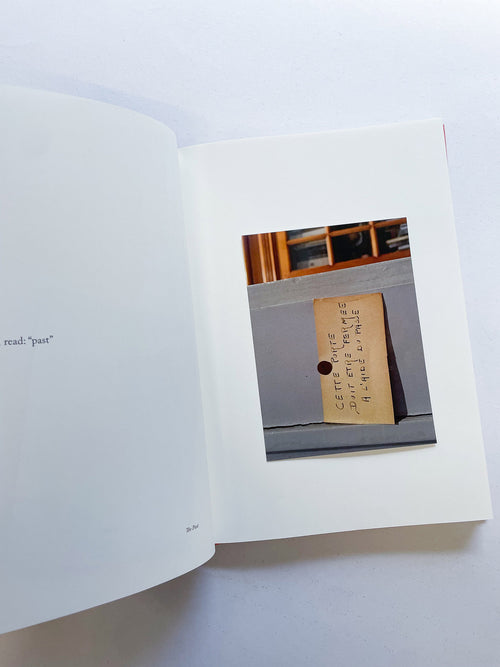 read: “past”
The Past
CETTE PORTE
DOIT ETRE FERMEE
A L'AIDE DU PASSE